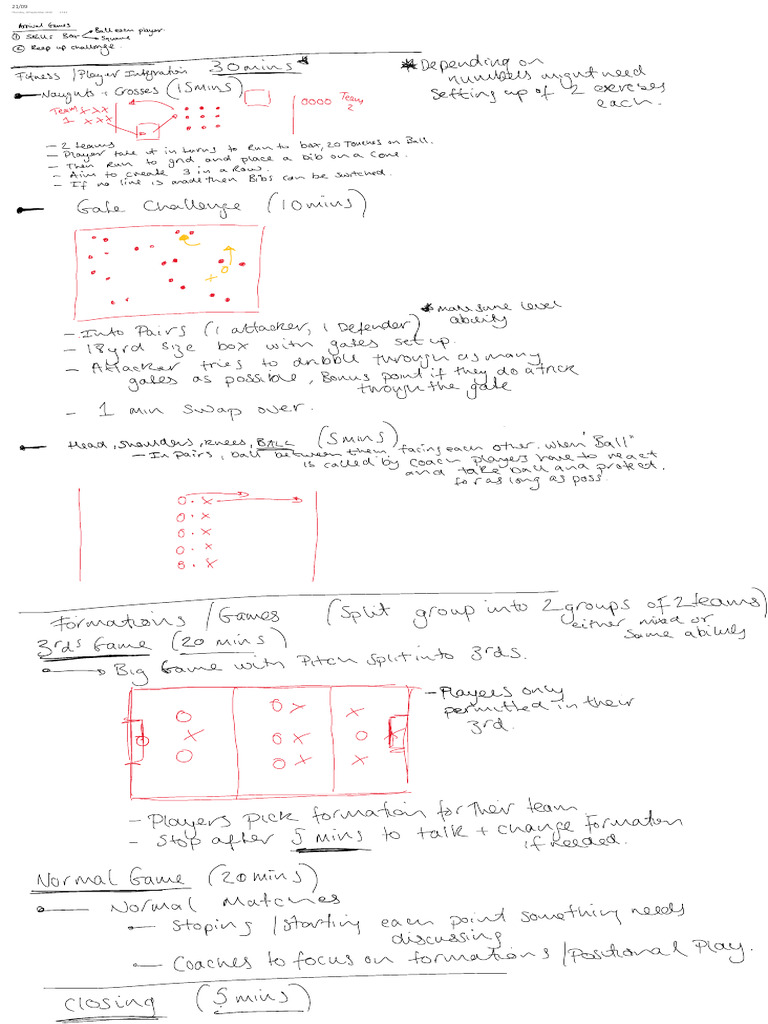 21/09
Arrival Games
① Skills Box → Ball each player
→ Square
② Keep up challenge.
Fitness / Player Integration 30mins *
* Depending on
numbers might need
setting up of 2 exercises
each.
Naughts + Crosses (15mins)
Team
1
Team
2
- 2 teams
- Player take it in turns to Run to box, 20 Touches on Ball.
- Then Run to grid and place a bib on a Cone.
- Aim to create 3 in a Row.
- If no line is made then Bibs can be switched.
Gate Challenge (10mins)
* make sure level
ability
- Into Pairs (1 attacker, 1 Defender)
- 18yrd size box with gates set up.
- Attacker tries to dribble through as many
gates as possible, Bonus point if they do a trick
through the gate
- 1 min swap over.
Head, Shoulders, Knees, BALL (5mins)
- In Pairs, ball between them facing each other. when "Ball"
is called by coach players have to react
and take ball and protect.
for as long as poss.
Formations / Games (Split group into 2 groups of 2 teams)
either mixed or
Same abilities
3rds Game (20 mins)
Big Game with Pitch split into 3rds.
- Players only
permitted in their
3rd.
- Players pick formation for their team
- Stop after 5 mins to talk + change formation
if needed.
Normal Game (20mins)
Normal Matches
Stoping / starting each point something needs
discussing
Coaches to focus on formations / Positional Play.
Closing (5mins)